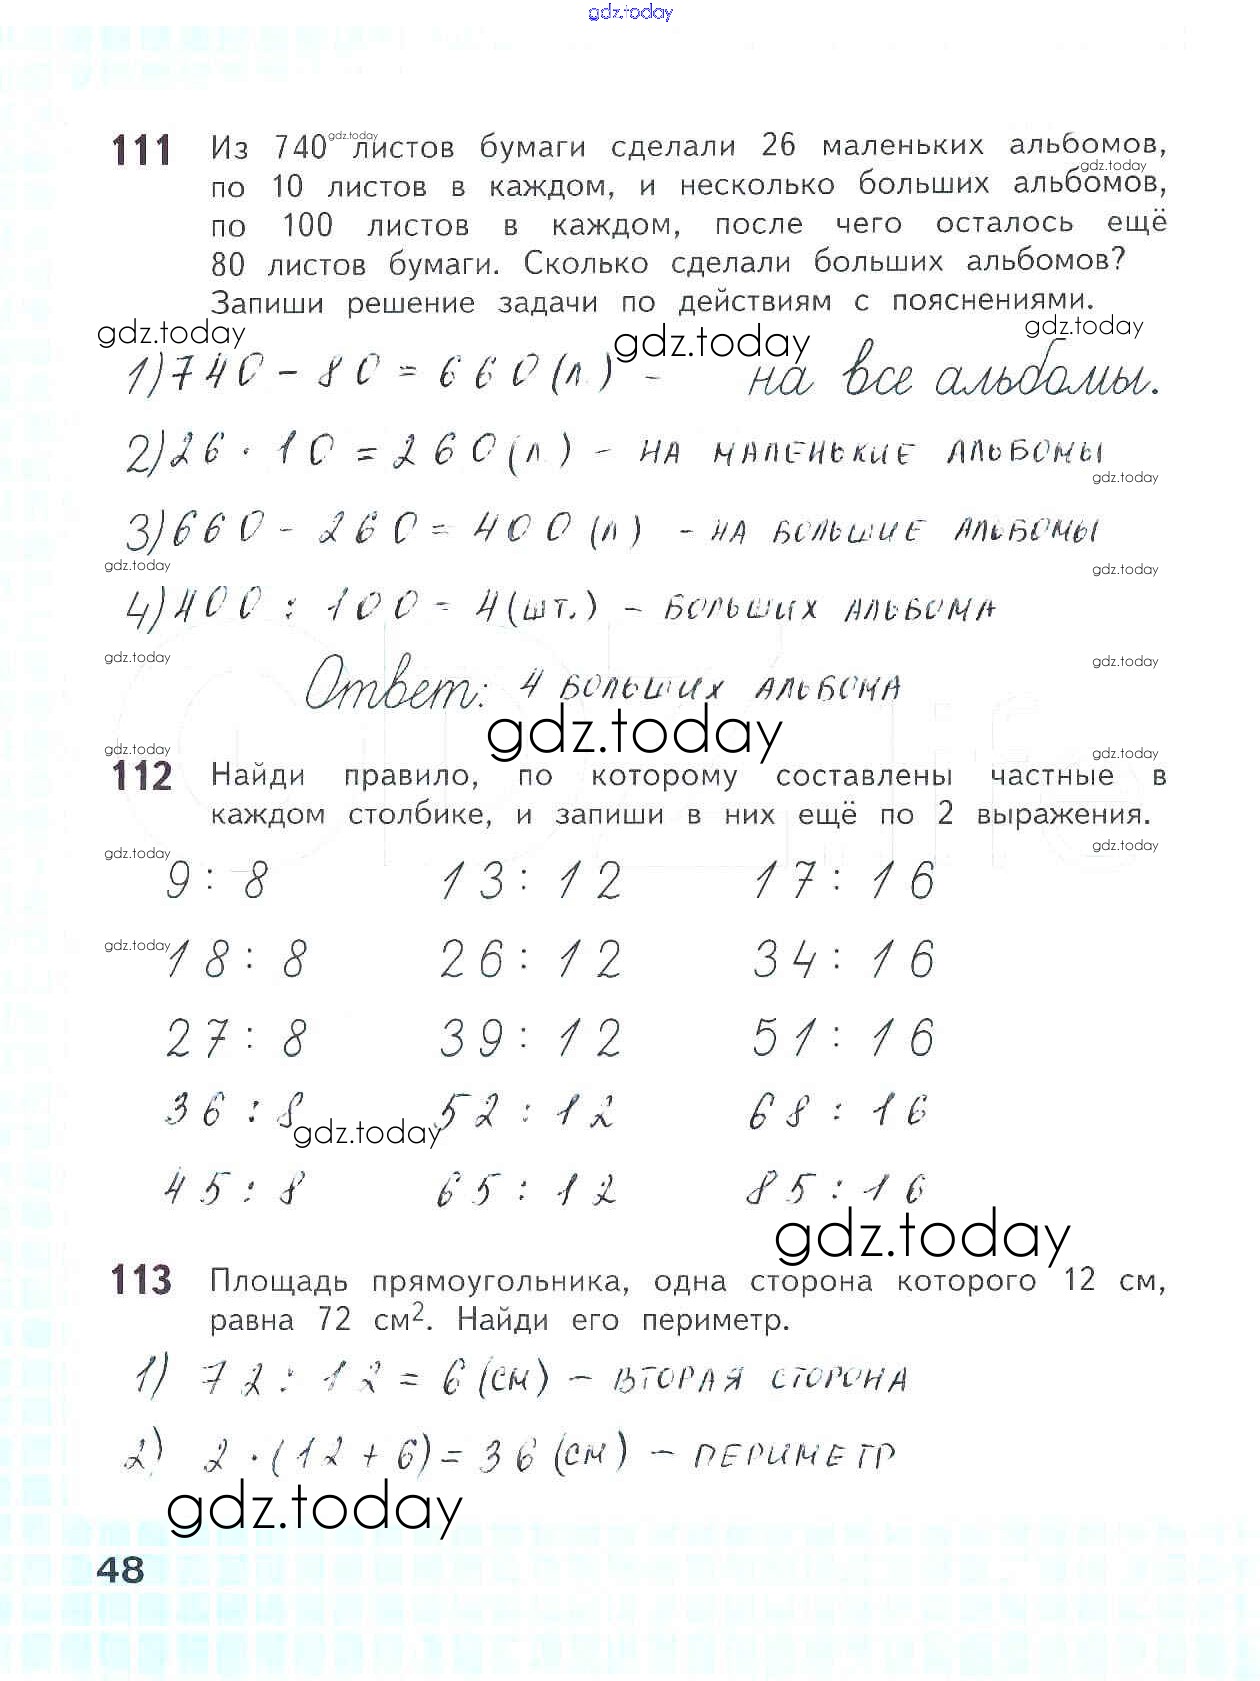 gdz.today
111 Из 740 листов бумаги сделали 26 маленьких альбомов,
gdz.today
по 10 листов в каждом, и несколько больших альбомов,
gdz.today
по 100 листов в каждом, после чего осталось ещё
80 листов бумаги. Сколько сделали больших альбомов?
Запиши решение задачи по действиям с пояснениями.
gdz.today gdz.today gdz.today
1) 740 - 80 = 660 (л.) - на все альбомы.
2) 26 · 10 = 260 (л.) - на маленькие альбомы
gdz.today
3) 660 - 260 = 400 (л) - на большие альбомы
gdz.today gdz.today
4) 400 : 100 = 4 (шт.) - больших альбома
gdz.today gdz.today
Ответ: 4 больших альбома
gdz.today
gdz.today gdz.today
112 Найди правило, по которому составлены частные в
каждом столбике, и запиши в них ещё по 2 выражения.
gdz.today gdz.today
9 : 8 13 : 12 17 : 16
gdz.today
18 : 8 26 : 12 34 : 16
27 : 8 39 : 12 51 : 16
36 : 8 52 : 12 68 : 16
gdz.today
45 : 8 65 : 12 85 : 16
gdz.today
113 Площадь прямоугольника, одна сторона которого 12 см,
равна 72 см². Найди его периметр.
1) 72 : 12 = 6 (см) - вторая сторона
2) 2 · (12 + 6) = 36 (см) - периметр
gdz.today
48